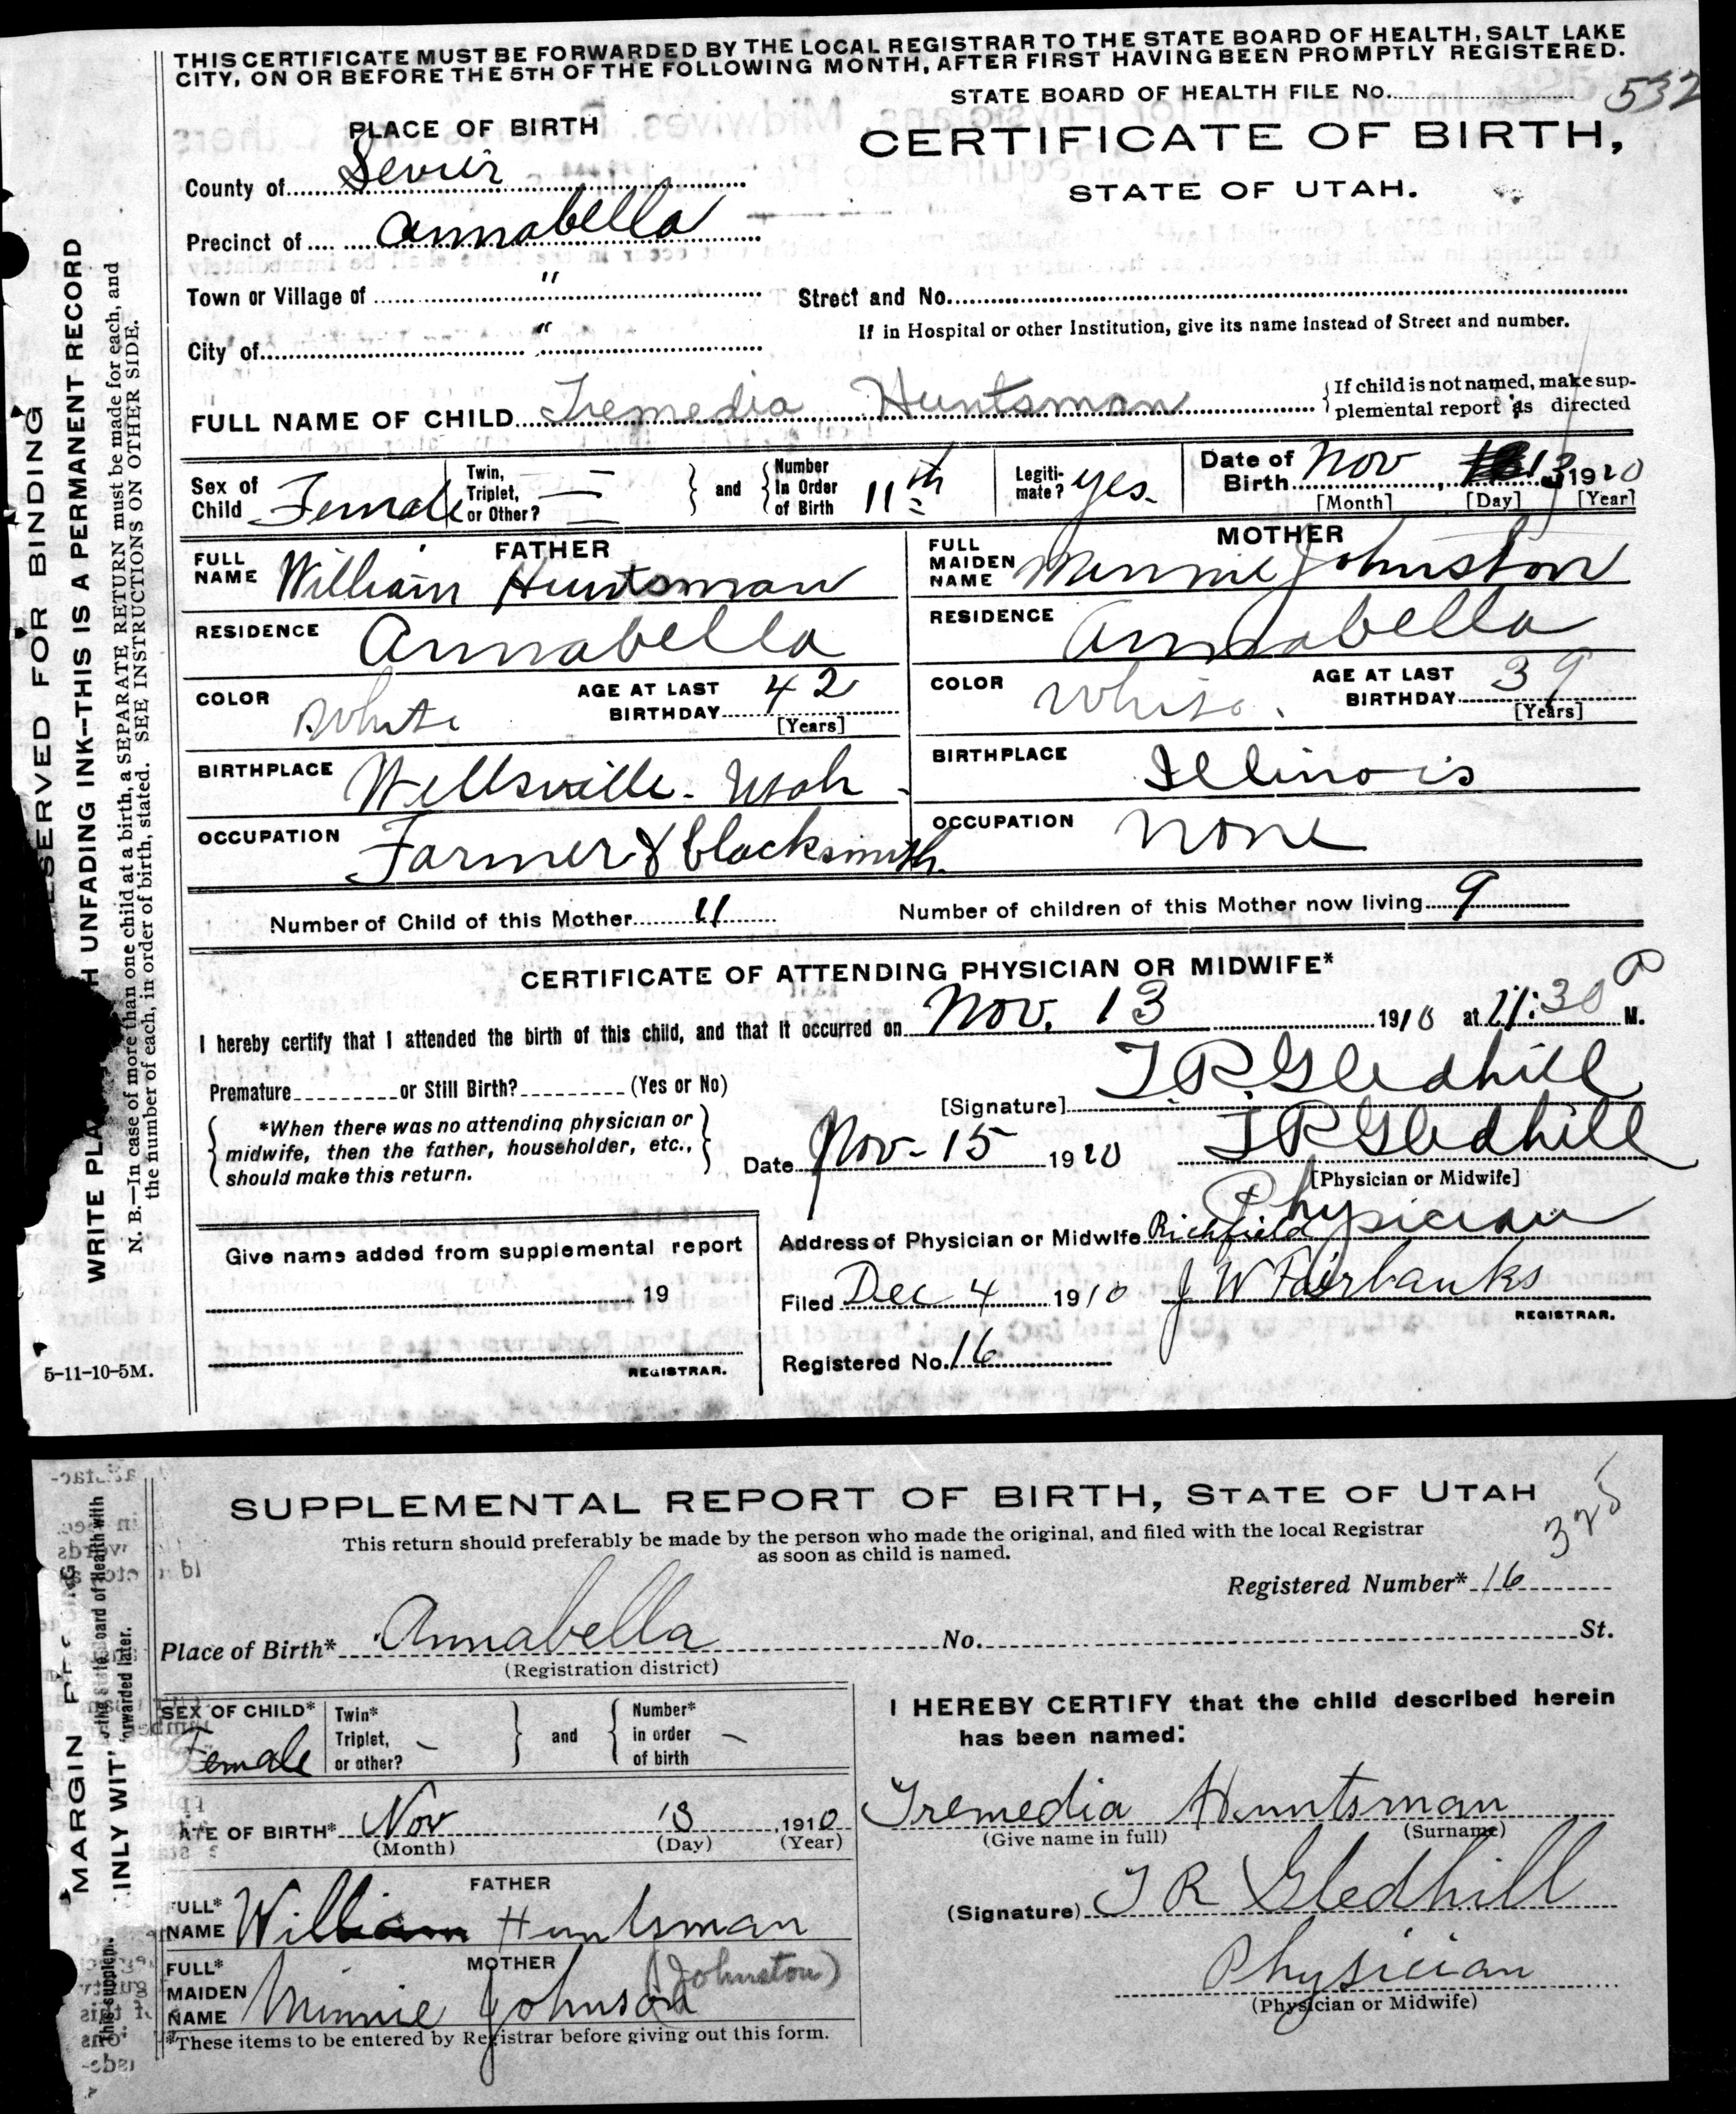 THIS CERTIFICATE MUST BE FORWARDED BY THE LOCAL REGISTRAR TO THE STATE BOARD OF HEALTH, SALT LAKE
CITY, ON OR BEFORE THE 5TH OF THE FOLLOWING MONTH, AFTER FIRST HAVING BEEN PROMPTLY REGISTERED.
STATE BOARD OF HEALTH FILE No. 532
PLACE OF BIRTH
CERTIFICATE OF BIRTH,
STATE OF UTAH.
County of Sevier
Precinct of Annabella
Town or Village of "
Street and No.
If in Hospital or other Institution, give its name instead of Street and number.
City of "
FULL NAME OF CHILD Iremedia Huntsman
{If child is not named, make sup-
plemental report as directed
Sex of Child Female
Twin, Triplet, or Other? —
and
Number In Order of Birth 11th
Legiti- mate? yes.
Date of Birth Nov 13 1910
[Month] [Day] [Year]
FATHER
FULL NAME William Huntsman
MOTHER
FULL MAIDEN NAME Minnie Johnston
RESIDENCE Annabella
RESIDENCE Annabella
COLOR White
AGE AT LAST BIRTHDAY 42
[Years]
COLOR White.
AGE AT LAST BIRTHDAY 39
[Years]
BIRTHPLACE Wellsville - Utah
BIRTHPLACE Illinois
OCCUPATION Farmer & blacksmith.
OCCUPATION None
Number of Child of this Mother 11
Number of children of this Mother now living 9
CERTIFICATE OF ATTENDING PHYSICIAN OR MIDWIFE*
I hereby certify that I attended the birth of this child, and that it occurred on Nov. 13 1910 at 11:30 P M.
Premature or Still Birth? (Yes or No)
[Signature] T R Gledhill
*When there was no attending physician or
midwife, then the father, householder, etc.,
should make this return.
Date Nov - 15 1910 T R Gledhill
[Physician or Midwife]
Physician
Address of Physician or Midwife Richfield
Give name added from supplemental report
19
REGISTRAR.
Filed Dec 4 1910 J W Fairbanks
REGISTRAR.
Registered No. 16
5-11-10-5M.
RESERVED FOR BINDING
UNFADING INK—THIS IS A PERMANENT RECORD
WRITE
N. B.—In case of more than one child at a birth, a SEPARATE RETURN must be made for each, and
the number of each, in order of birth, stated. SEE INSTRUCTIONS ON OTHER SIDE.
SUPPLEMENTAL REPORT OF BIRTH, STATE OF UTAH
This return should preferably be made by the person who made the original, and filed with the local Registrar
as soon as child is named.
325
Registered Number* 16
Place of Birth* Annabella No. St.
(Registration district)
SEX OF CHILD* Female
Twin* Triplet, or other? -
and
Number* in order of birth -
I HEREBY CERTIFY that the child described herein
has been named:
ATE OF BIRTH* Nov 13 1910
(Month) (Day) (Year)
Iremedia Huntsman
(Give name in full) (Surname)
FATHER
FULL* NAME William Huntsman
(Signature) T R Gledhill
MOTHER
FULL* MAIDEN NAME Minnie Johnson (Johnston)
Physician
(Physician or Midwife)
*These items to be entered by Registrar before giving out this form.
MARGIN